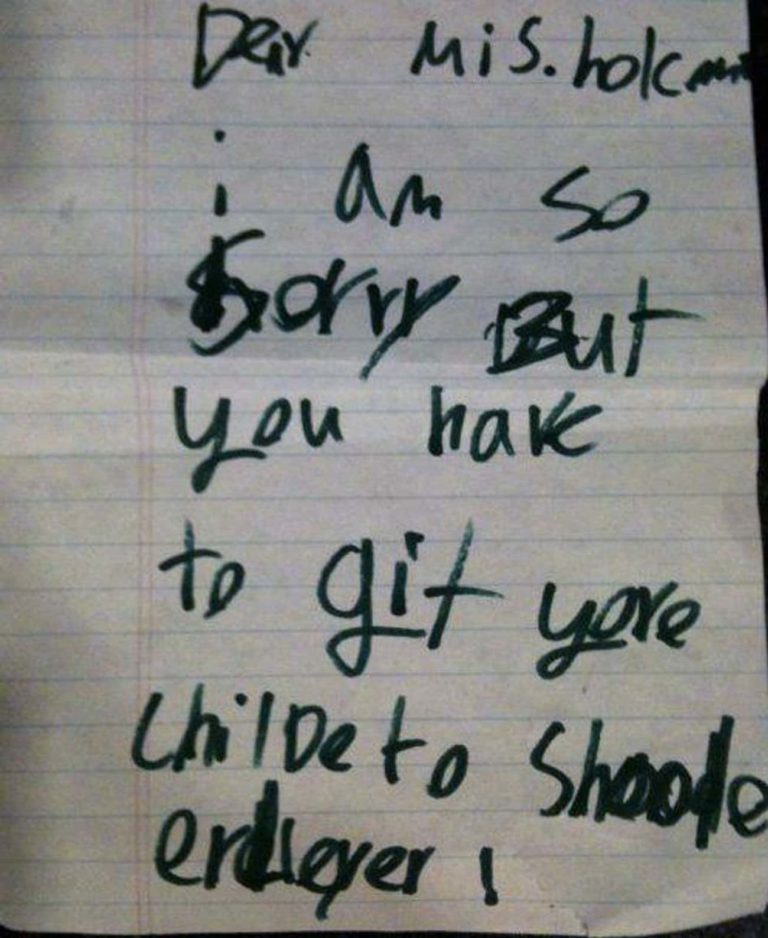 Deir Mis. holc
i am so
Sorry But
you have
to git yore
Childe to Shoode
erdleyer !